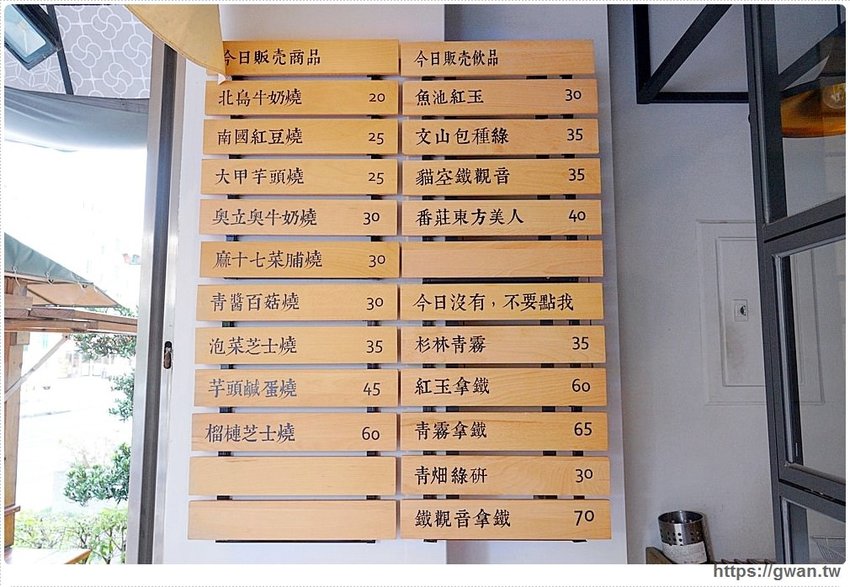 今日販売商品
北島牛奶燒 20
南國紅豆燒 25
大甲芋頭燒 25
奧立奧牛奶燒 30
麻十七菜脯燒 30
青醬百菇燒 30
泡菜芝士燒 35
芋頭鹹蛋燒 45
榴槤芝士燒 60
今日販売飲品
魚池紅玉 30
文山包種綠 35
貓空鐵觀音 35
番莊東方美人 40
今日沒有，不要點我
杉林青霧 35
紅玉拿鐵 60
青霧拿鐵 65
青畑綠研 30
鐵觀音拿鐵 70
https://gwan.tw